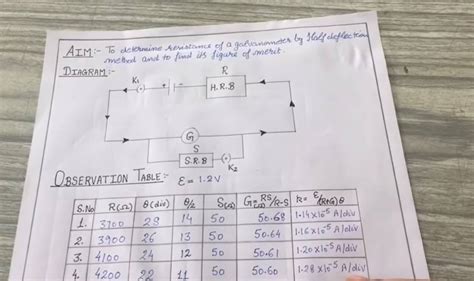 AIM:- To determine resistance of a galvanometer by Half deflection
method and to find its figure of merit.
DIAGRAM:-
K1 + - R
H.R.B
G
S
S.R.B
K2
OBSERVATION TABLE:- ε = 1.2V
S.No R(Ω) θ(div) θ/2 S(Ω) G(Ω) = RS/R-S k = ε/(R+G)θ
1. 3700 28 14 50 50.68 1.14×10⁻⁵ A/div
2. 3900 26 13 50 50.64 1.16×10⁻⁵ A/div
3. 4100 24 12 50 50.61 1.20×10⁻⁵ A/div
4. 4200 22 11 50 50.60 1.28×10⁻⁵ A/div